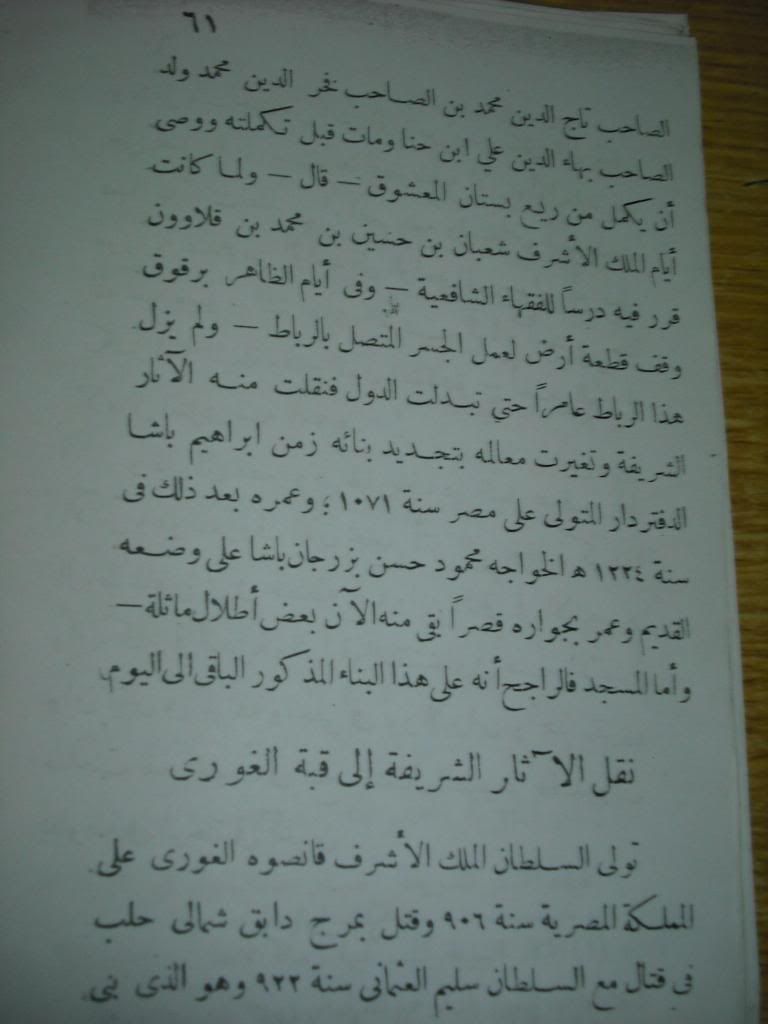 ٦١
الصاحب تاج الدين محمد بن الصاحب فخر الدين محمد ولد
الصاحب بهاء الدين علي ابن حنا ومات قبل تكملته ووصى
أن يكمل من ريع بستان المعشوق — قال — ولما كانت
أيام الملك الأشرف شعبان بن حسين بن محمد بن قلاوون
قرر فيه درساً للفقهاء الشافعية — وفى أيام الظاهر برقوق
وقف قطعة أرض لعمل الجسر المتصل بالرباط — ولم يزل
هذا الرباط عامراً حتي تبدلت الدول فنقلت منه الآثار
الشريفة وتغيرت معالمه بتجديد بنائه زمن ابراهيم باشا
الدفتردار المتولى على مصر سنة ١٠٧١ ؛ وعمره بعد ذلك فى
سنة ١٢٢٤ ه الخواجه محمود حسن بزرجان باشا على وضعه
القديم وعمر بجواره قصراً بقى منه الآن بعض أطلال ماثلة —
وأما المسجد فالراجح أنه على هذا البناء المذكور الباقى الى اليوم
نقل الآثار الشريفة إلى قبة الغورى
تولى السلطان الملك الأشرف قانصوه الغورى على
المملكة المصرية سنة ٩٠٦ وقتل بمرج دابق شمالى حلب
فى قتال مع السلطان سليم العثمانى سنة ٩٢٢ وهو الذى بنى